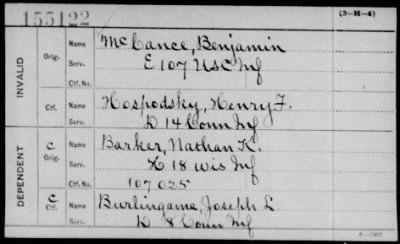 155122
(3-H-4)
INVALID
Orig.
Name McCance, Benjamin
Serv. E 107 USC Inf
Ctf. No.
Ctf.
Name Hospodsky, Henry F.
Serv. D 14 Conn Inf
DEPENDENT
C
Orig.
Name Barker, Nathan K.
Serv. H 18 Wis Inf
Ctf. No. 107025
C
Ctf.
Name Burlingame, Joseph L
Serv. D 8 Conn Inf